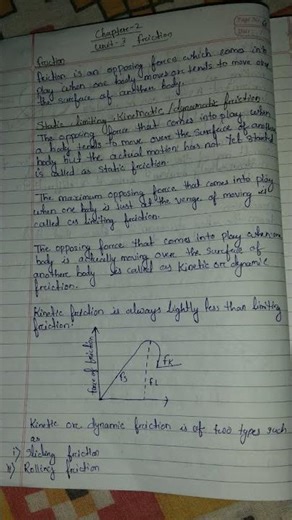 Chapter-2
Unit-3 friction
friction
friction is an opposing force which comes into
play when one body moves or tends to move over
the surface of another body.
Static, limiting, Kinematic / dynamic friction
The opposing force that comes into play when
a body tends to move over the surface of another
body but the actual motion has not yet started
is called as static friction.
The maximum opposing force that comes into play
when one body is just at the verge of moving is
called as limiting friction.
The opposing force that comes into play when one
body is actually moving over the surface of
another body is called as kinetic or dynamic
friction.
Kinetic friction is always lightly less than limiting
friction.
force of friction
fs
fL
fK
Kinetic or dynamic friction is of two types such
as
i) Sliding friction
ii) Rolling friction